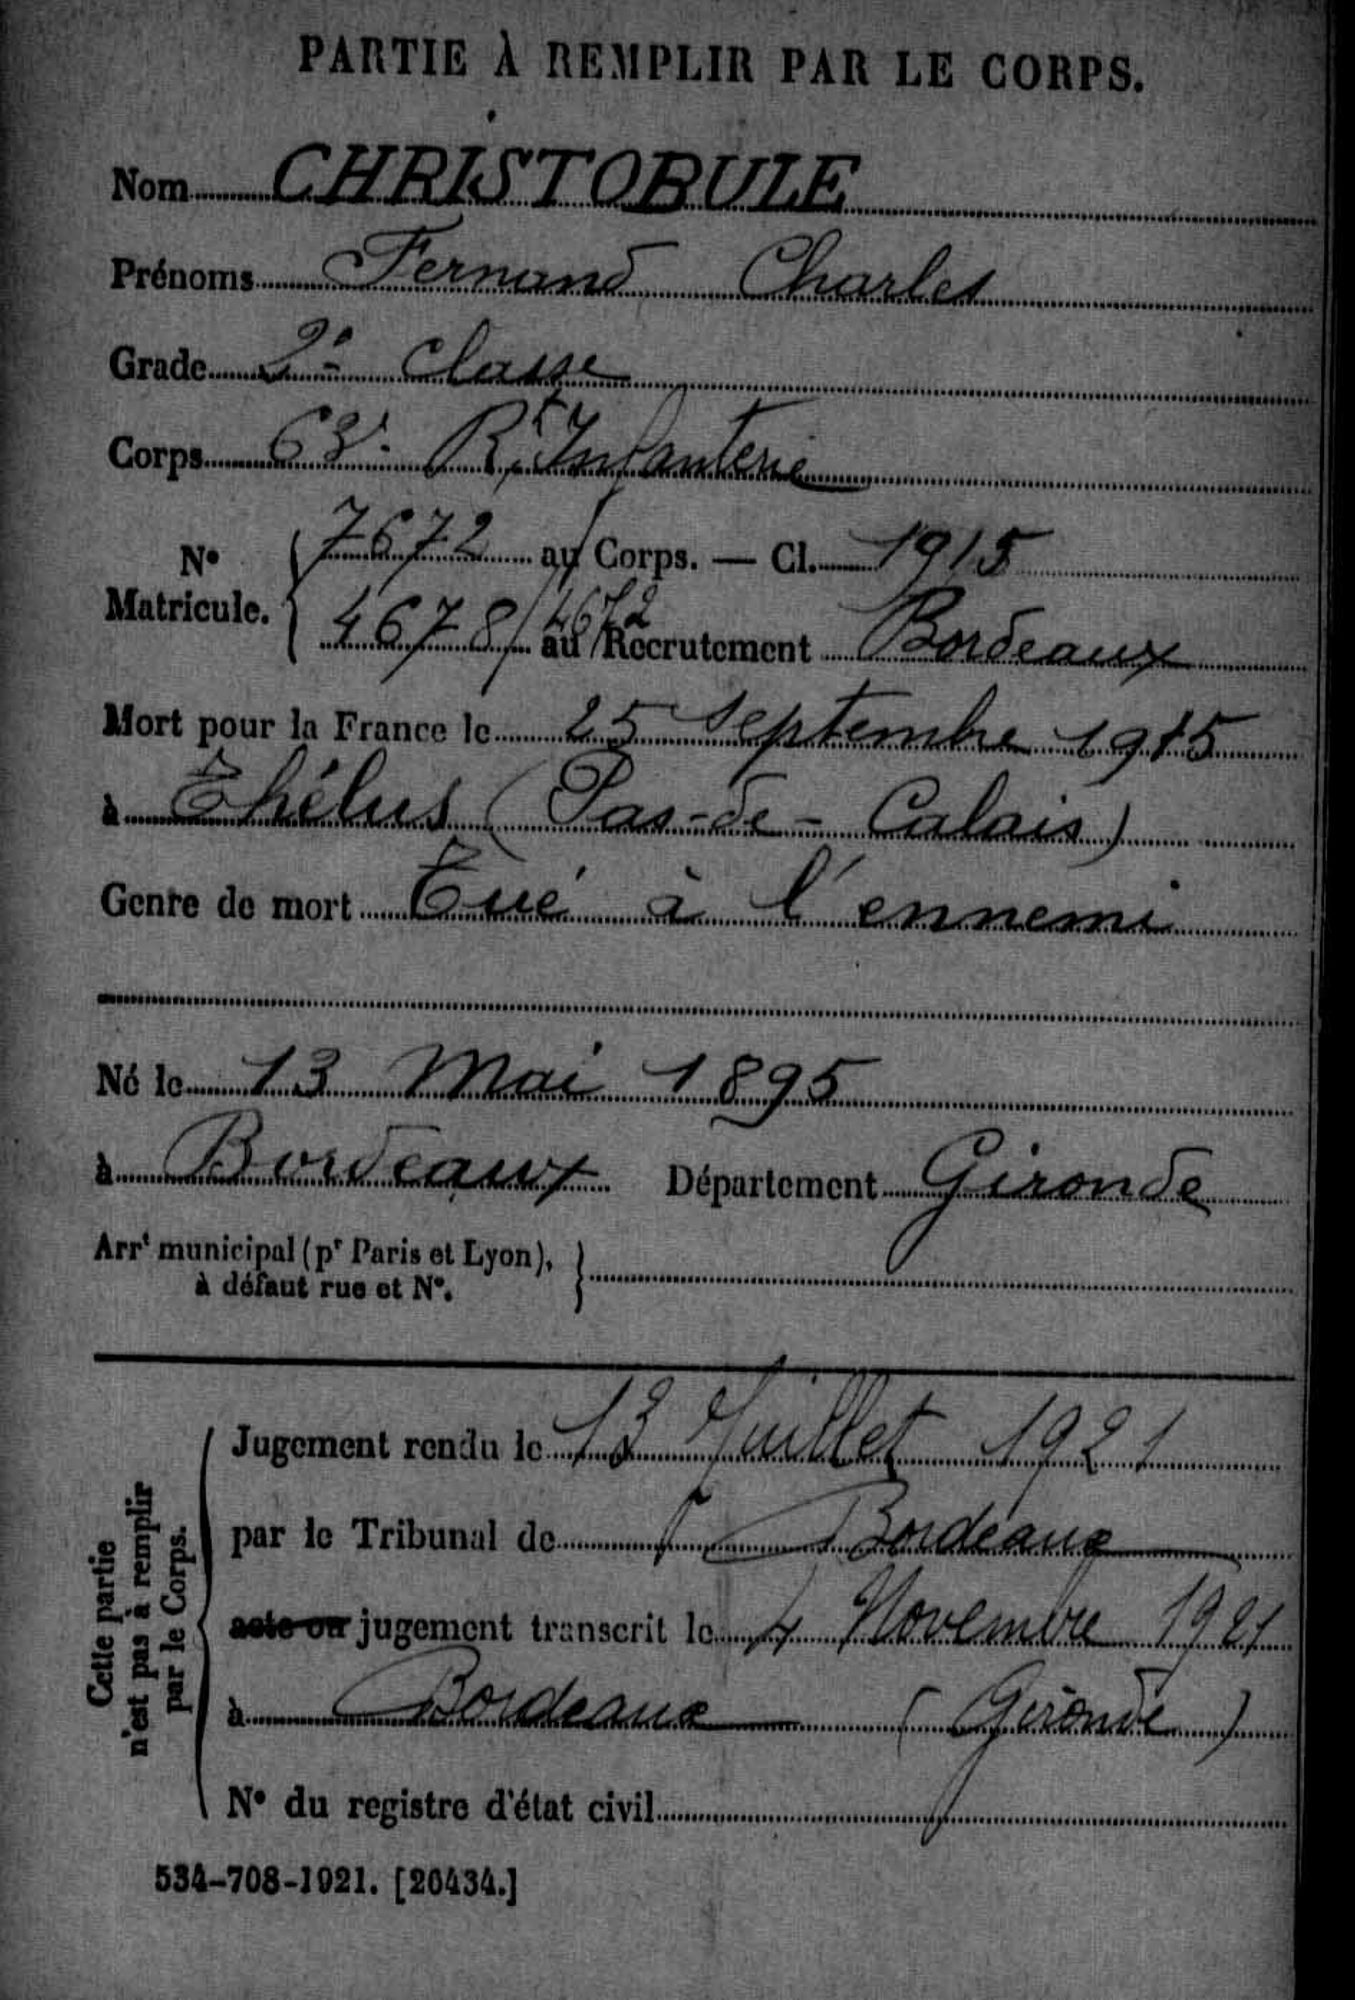 PARTIE À REMPLIR PAR LE CORPS.
Nom CHRISTOBULE
Prénoms Fernand Charles
Grade 2e classe
Corps 63e Rt Infanterie
No Matricule. 7672 au Corps. — Cl. 1915
4678 / 4672 au Recrutement Bordeaux
Mort pour la France le 25 Septembre 1915
à Thélus (Pas-de-Calais)
Genre de mort Tué à l'ennemi
Né le 13 Mai 1895
à Bordeaux Département Gironde
Arrt municipal (pr Paris et Lyon),
à défaut rue et No.
Cette partie
n'est pas à remplir
par le Corps.
Jugement rendu le 13 Juillet 1921
par le Tribunal de Bordeaux
acte ou jugement transcrit le 4 Novembre 1921
à Bordeaux (Gironde)
No du registre d'état civil
534-708-1921. [26434.]